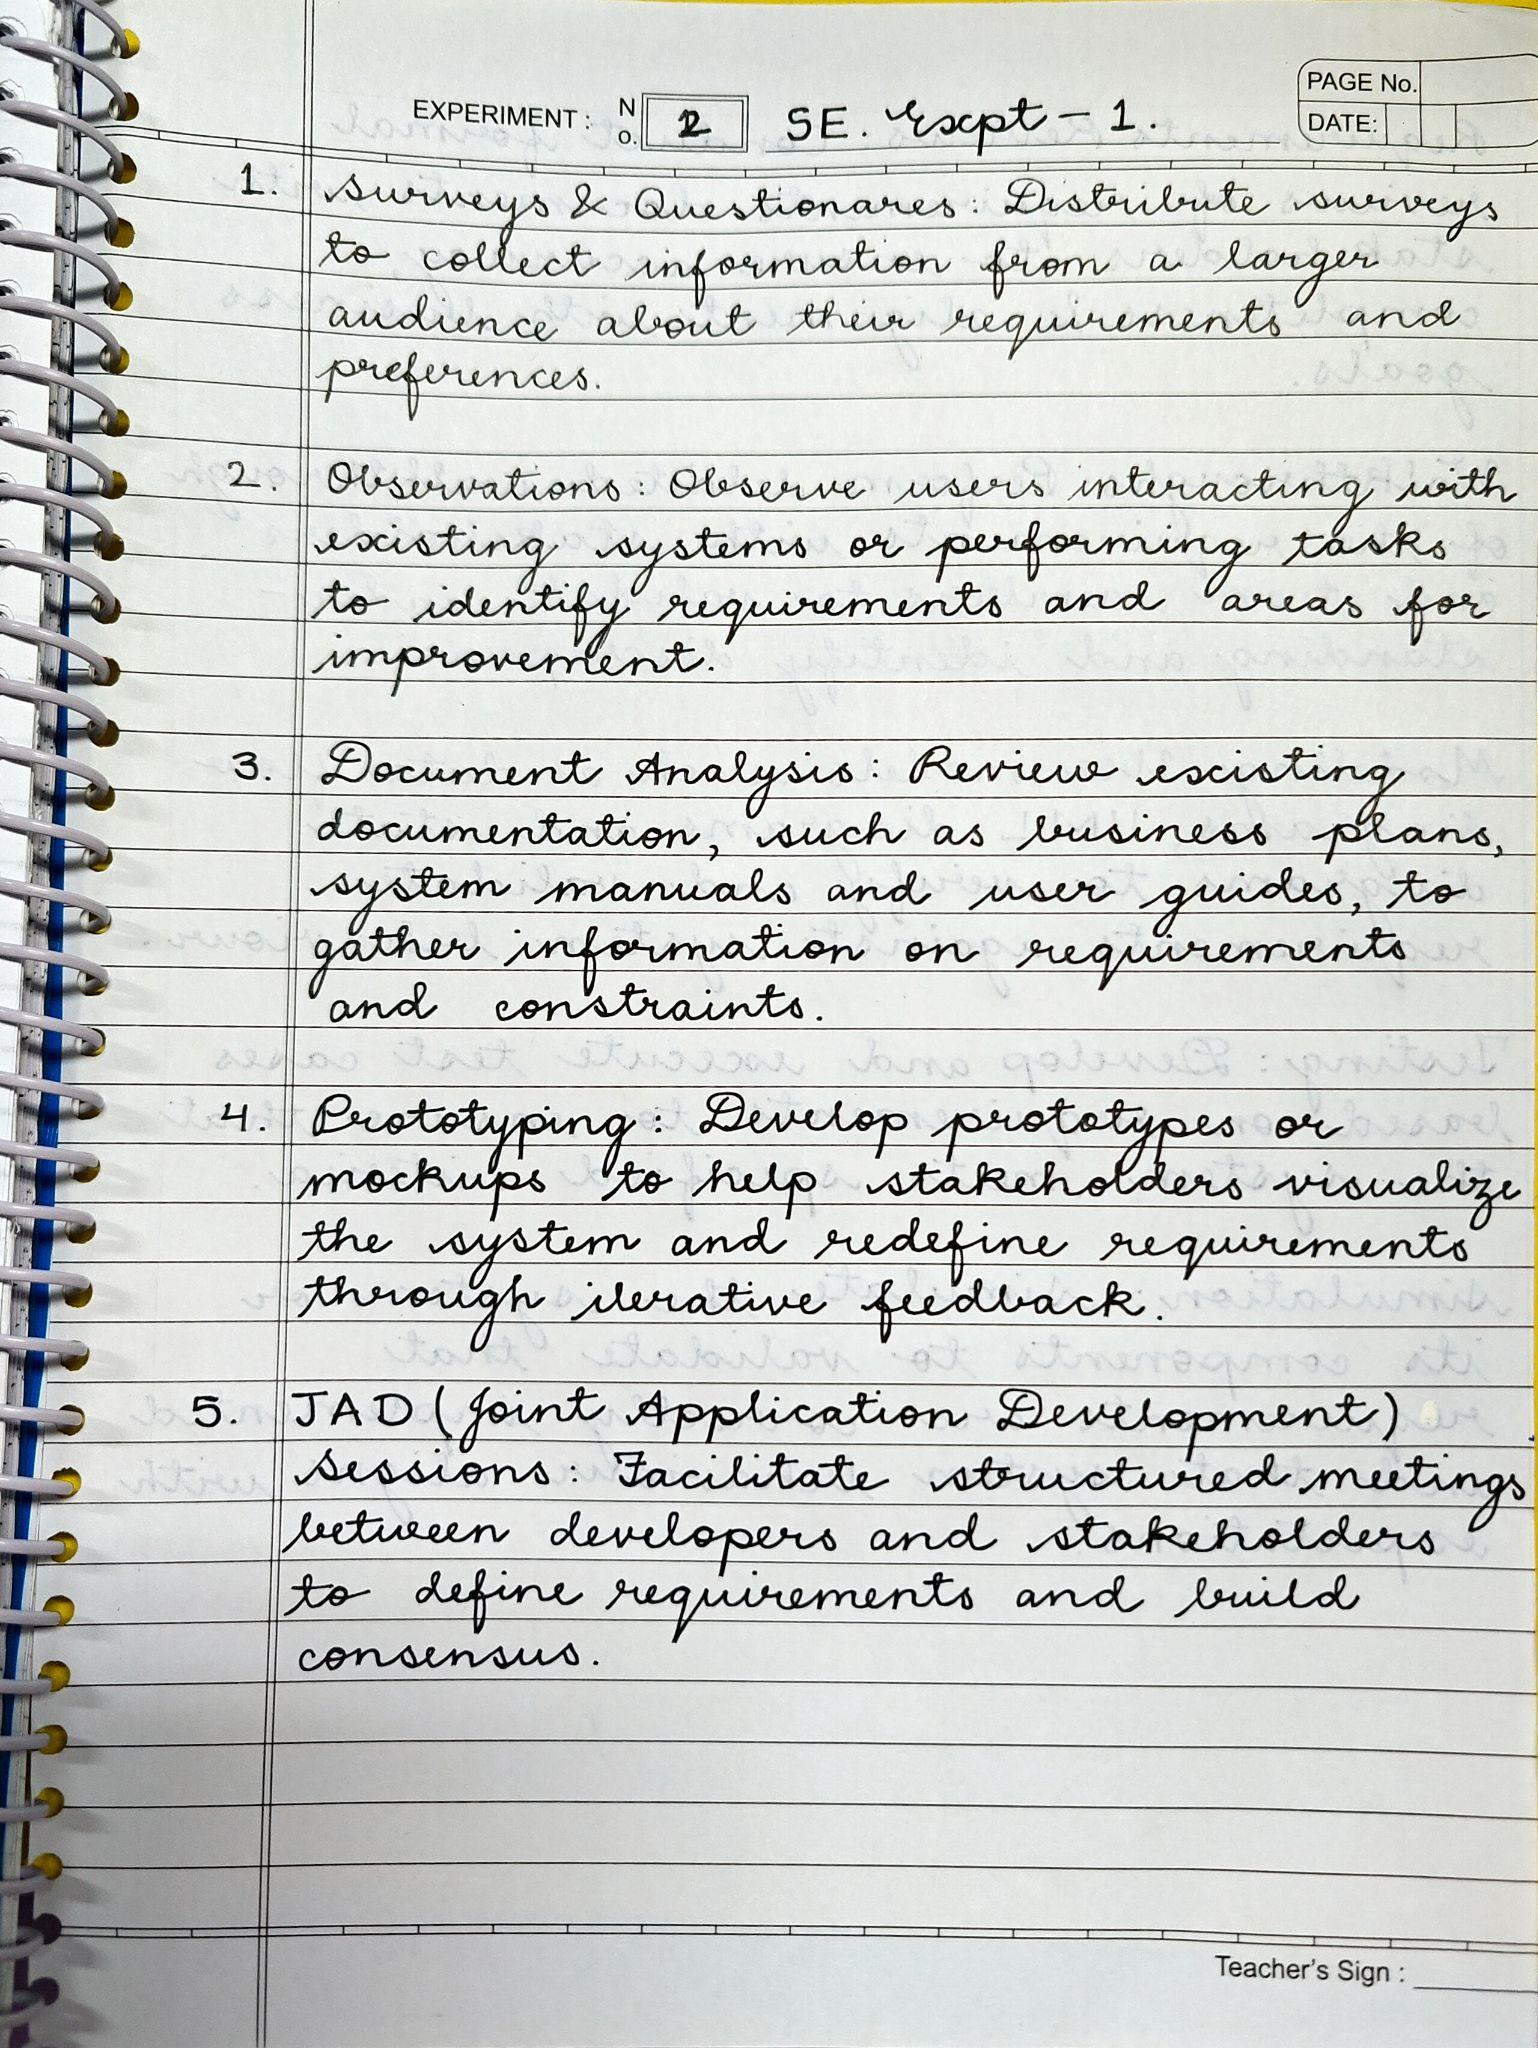 PAGE No.
EXPERIMENT: NO. 2 SE. Expt - 1.
DATE:
1. Surveys & Questionares: Distribute surveys
to collect information from a larger
audience about their requirements and
preferences.
2. Observations: Observe users interacting with
existing systems or performing tasks
to identify requirements and areas for
improvement.
3. Document Analysis: Review existing
documentation, such as business plans,
system manuals and user guides, to
gather information on requirements
and constraints.
4. Prototyping: Develop prototypes or
mockups to help stakeholders visualize
the system and redefine requirements
through iterative feedback.
5. JAD (Joint Application Development)
Sessions: Facilitate structured meetings
between developers and stakeholders
to define requirements and build
consensus.
Teacher's Sign: